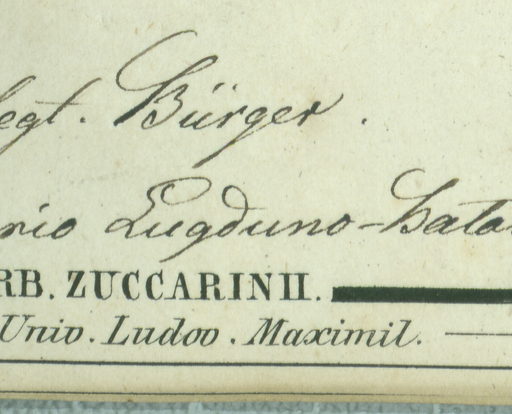 legt. Bürger.
rio Lugduno-bata
RB. ZUCCARINII.
Univ. Ludov. Maximil.